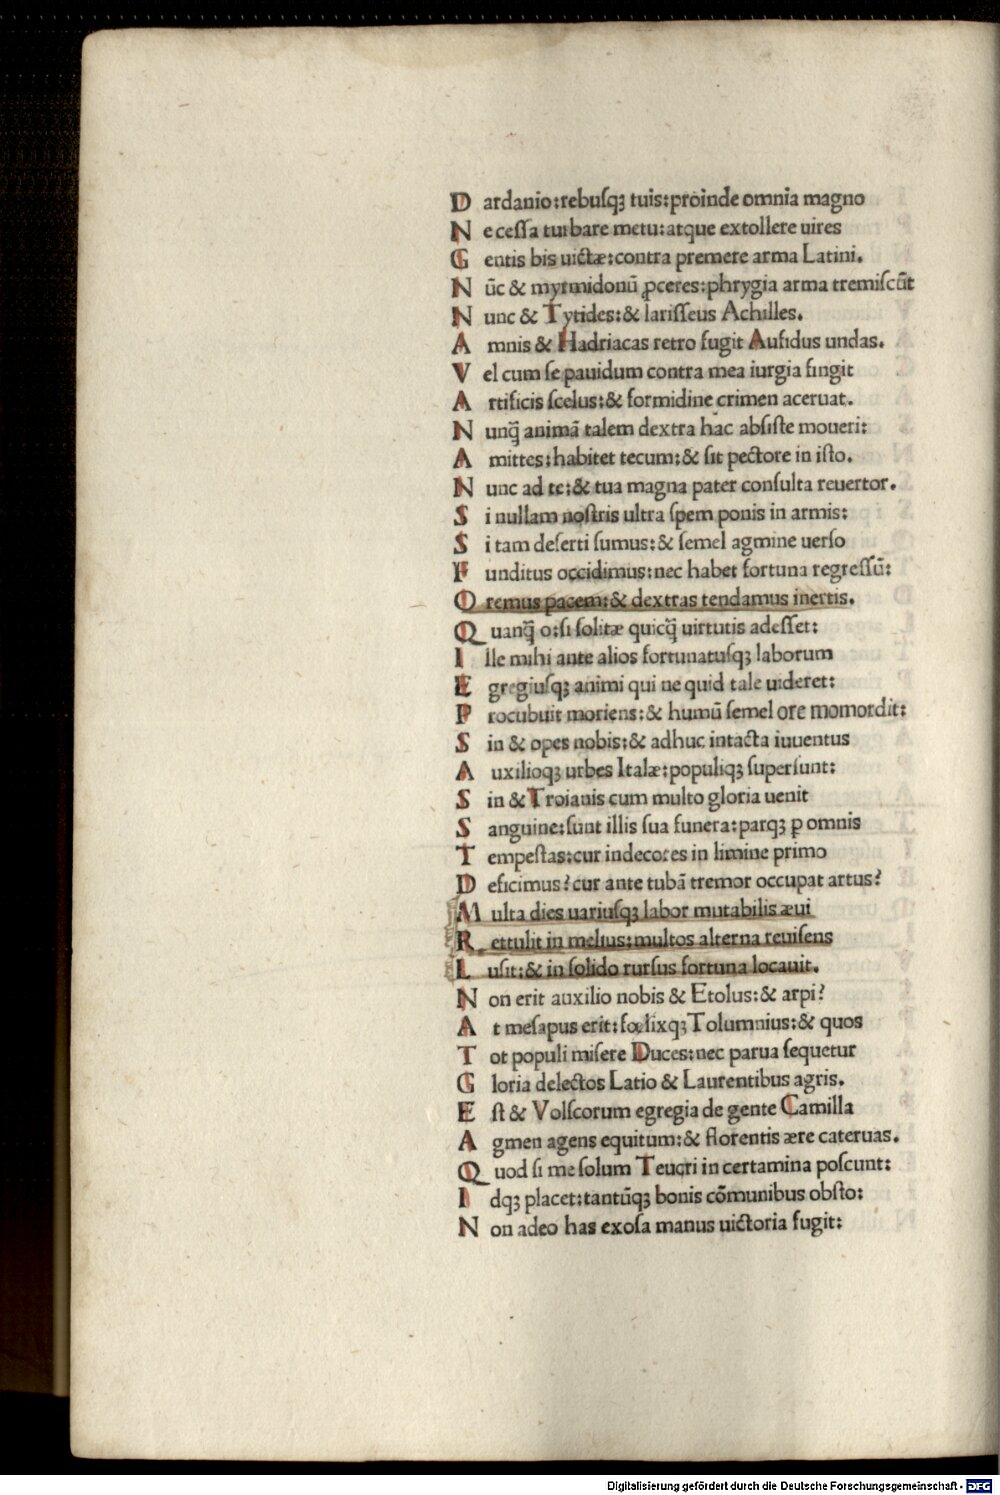 D ardanio:rebuſqꝫ tuis:proinde omnia magno
N e ceſſa turbare metu:atque extollere uires
G entis bis uictæ:contra premere arma Latini.
N ūc & myrmidonū ꝓceres:phrygia arma tremiſcūt
N unc & Tytides:& lariſſeus Achilles.
A mnis & Hadriacas retro fugit Aufidus undas.
V el cum ſe pauidum contra mea iurgia fingit
A rtificis ſcelus:& formidine crimen aceruat.
N unq̄ animā talem dextra hac abſiſte moueri:
A mittes:habitet tecum:& ſit pectore in iſto.
N unc ad te:& tua magna pater conſulta reuertor.
S i nullam noſtris ultra ſpem ponis in armis:
S i tam deſerti ſumus:& ſemel agmine uerſo
F unditus occidimus:nec habet fortuna regreſſū:
O remus pacem:& dextras tendamus inertis.
Q uanq̄ o:ſi ſolitæ quicq̄ uirtutis adeſſet:
I lle mihi ante alios fortunatuſqꝫ laborum
E gregiuſqꝫ animi qui ne quid tale uideret:
P rocubuit moriens:& humū ſemel ore momordit:
S in & opes nobis:& adhuc intacta iuuentus
A uxilioqꝫ urbes Italæ:populiqꝫ ſuperſunt:
S in & Troianis cum multo gloria uenit
S anguine:ſunt illis ſua funera:parqꝫ p omnis
T empeſtas:cur indecores in limine primo
D eficimus?cur ante tubā tremor occupat artus?
M ulta dies uariuſqꝫ labor mutabilis æui
R ettulit in melius:multos alterna reuiſens
L uſit:& in ſolido rurſus fortuna locauit.
N on erit auxilio nobis & Etolus:& arpi?
A t meſapus erit:fœlixqꝫ Tolumnius:& quos
T ot populi miſere Duces:nec parua ſequetur
G loria delectos Latio & Laurentibus agris.
E ſt & Volſcorum egregia de gente Camilla
A gmen agens equitum:& florentis ære cateruas.
Q uod ſi me ſolum Teucri in certamina poſcunt:
I dqꝫ placet:tantūqꝫ bonis cōmunibus obſto:
N on adeo has exoſa manus uictoria fugit:
Digitalisierung gefördert durch die Deutsche Forschungsgemeinschaft - DFG